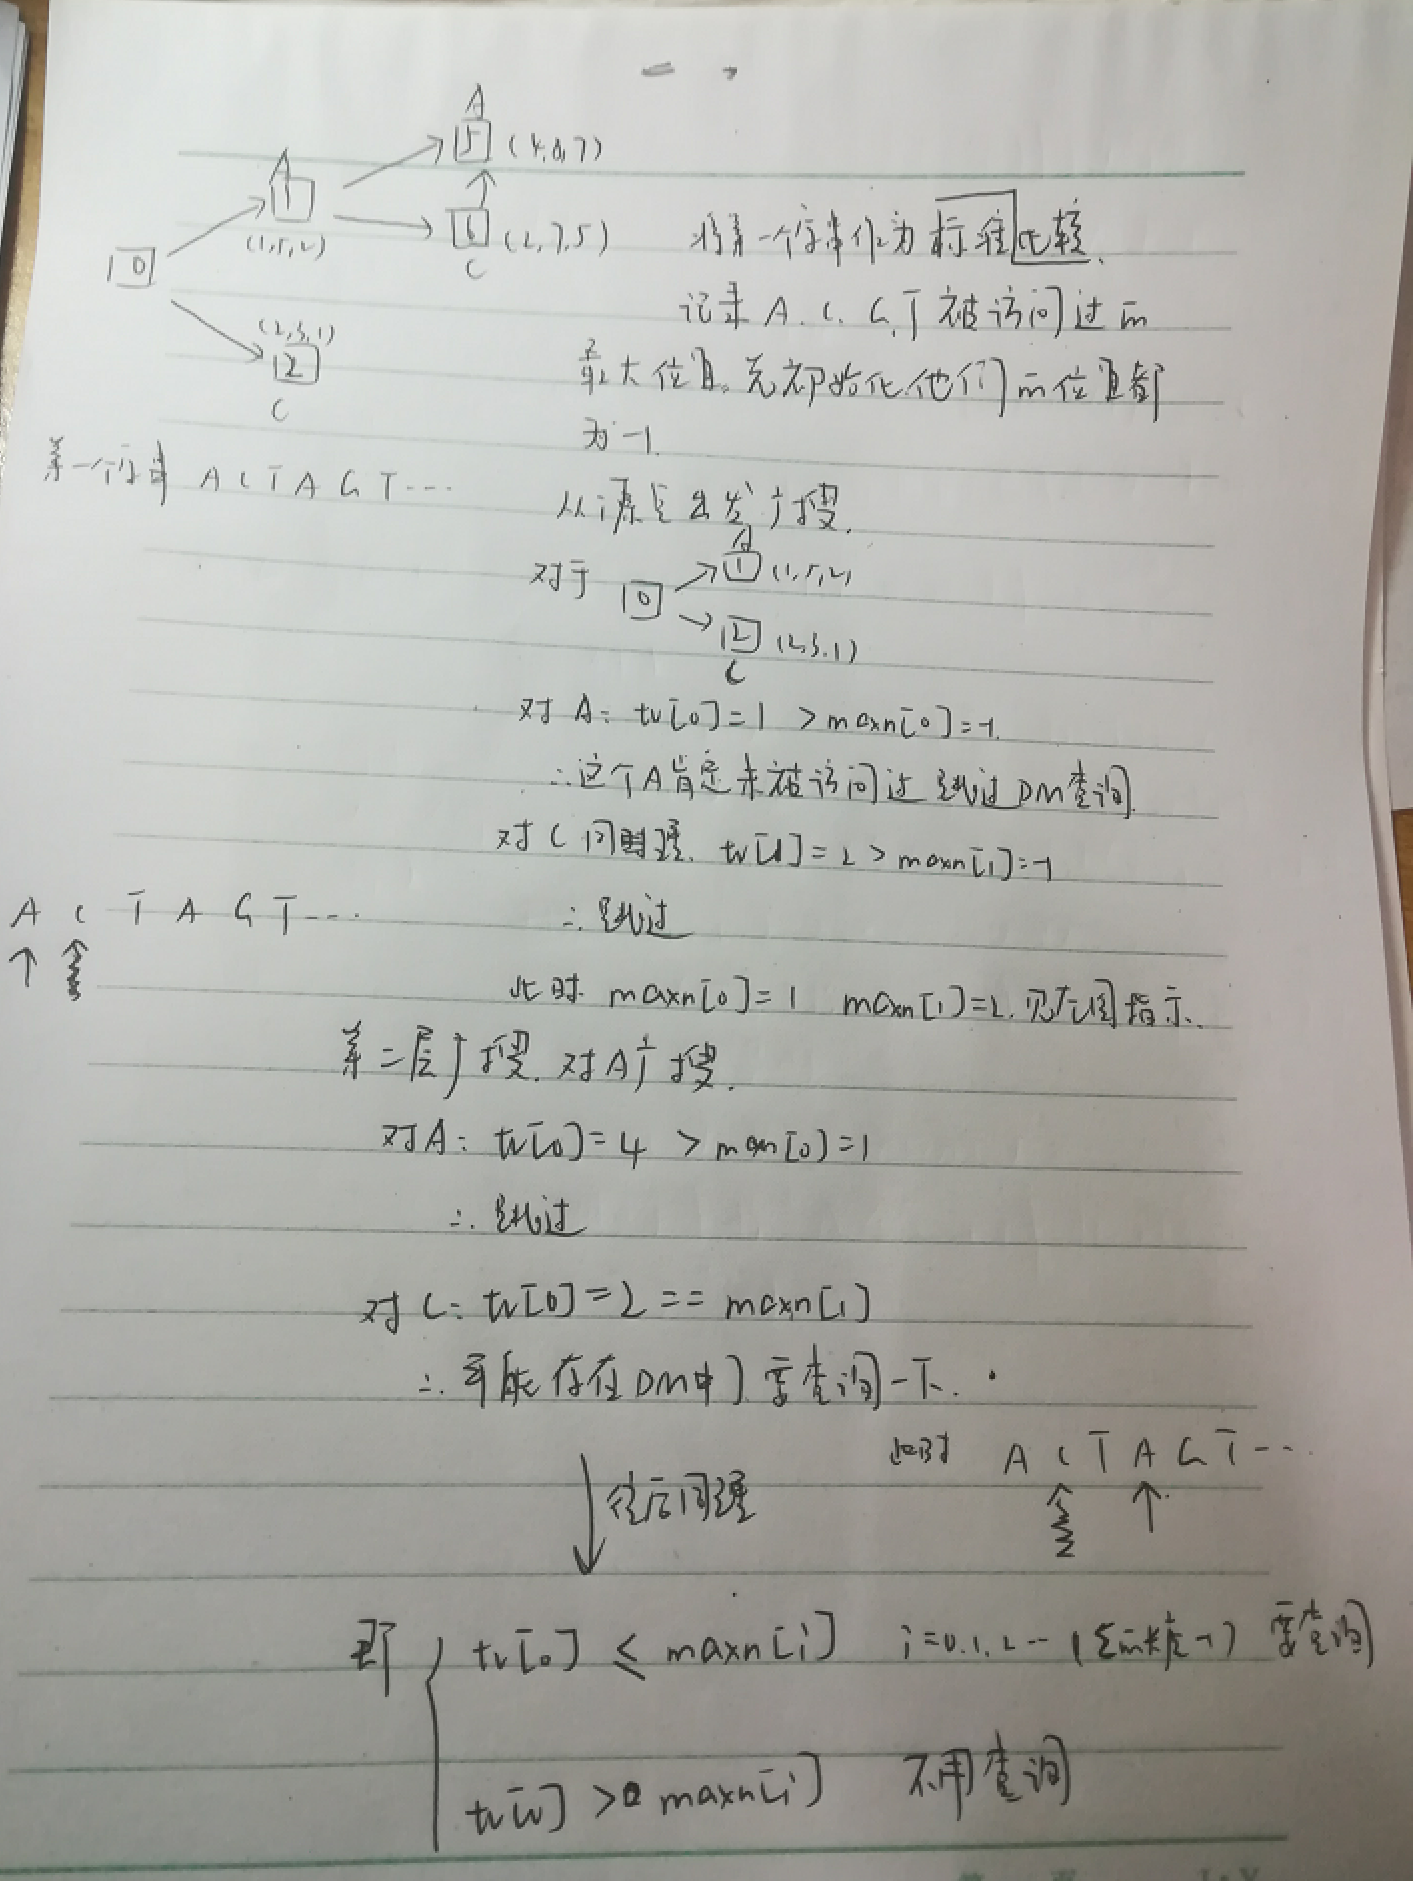 A
5 (4,6,7)
A
1
(1,5,2)
6 (2,7,5)
C
0
(2,3,1)
2
C
将第一个字串作为标准比较.
记录 A. C. G. T 被访问过的
最大位置。先初始化他们的位置都
为 -1.
第一个字串 A C T A G T ...
从源点出发广搜.
对于 0
A
1 (1,5,2)
2 (2,3,1)
C
对 A: tv[0]=1 > maxn[0]=-1.
∴ 这个A肯定未被访问过 跳过DM查询.
对 C 同理. tv[0]=2 > maxn[1]=-1
A C T A G T ...
∴ 跳过
此时 maxn[0]=1 maxn[1]=2. 见左图指示.
第二层广搜. 对A广搜.
对A: tv[0]=4 > maxn[0]=1
∴ 跳过
对 C: tv[0]=2 == maxn[1]
∴ 可能存在DM中 需查询一下.
此时 A C T A G T ...
往后同理
即 tv[0] ≤ maxn[i] i=0.1.2 ... (Σ的长度-1) 需查询
tv[0] > maxn[i] 不用查询